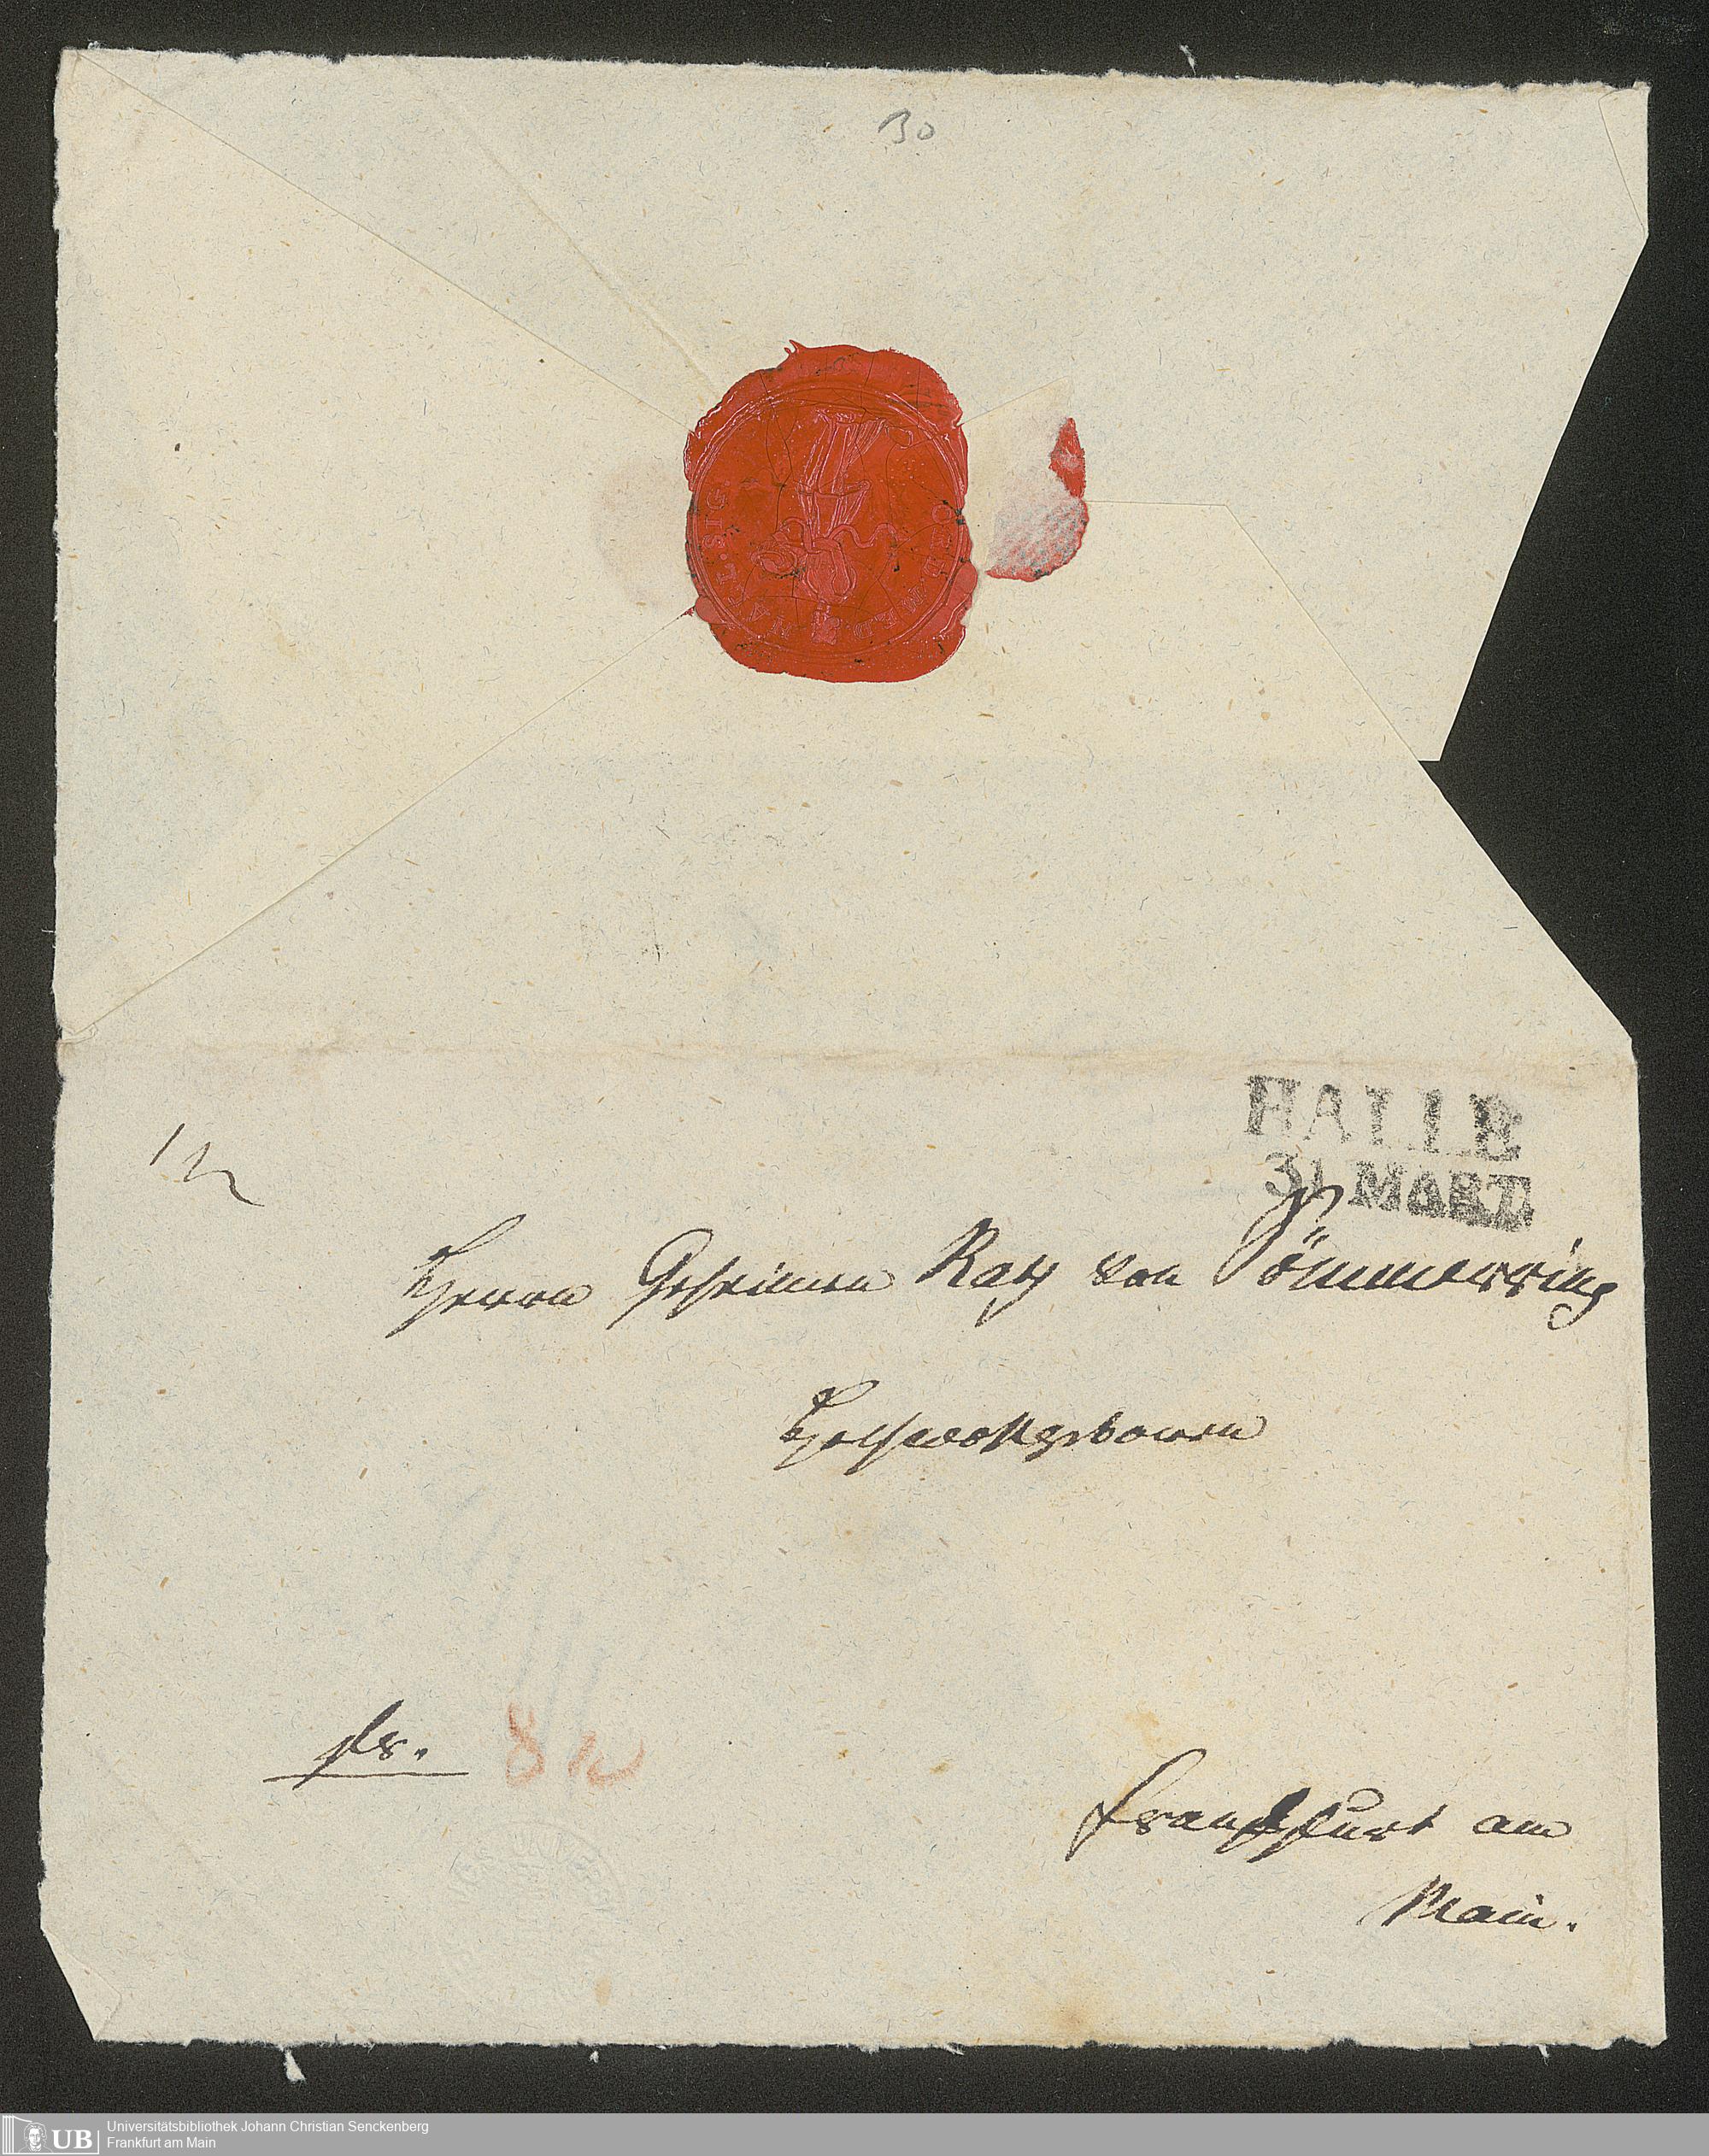 30
HALLE
31 MÄRZ
Herrn Geheimen Rath von Sömmerring
Hochwohlgeboren
fr.
8
Frankfurt am
Main.
UB
Universitätsbibliothek Johann Christian Senckenberg
Frankfurt am Main